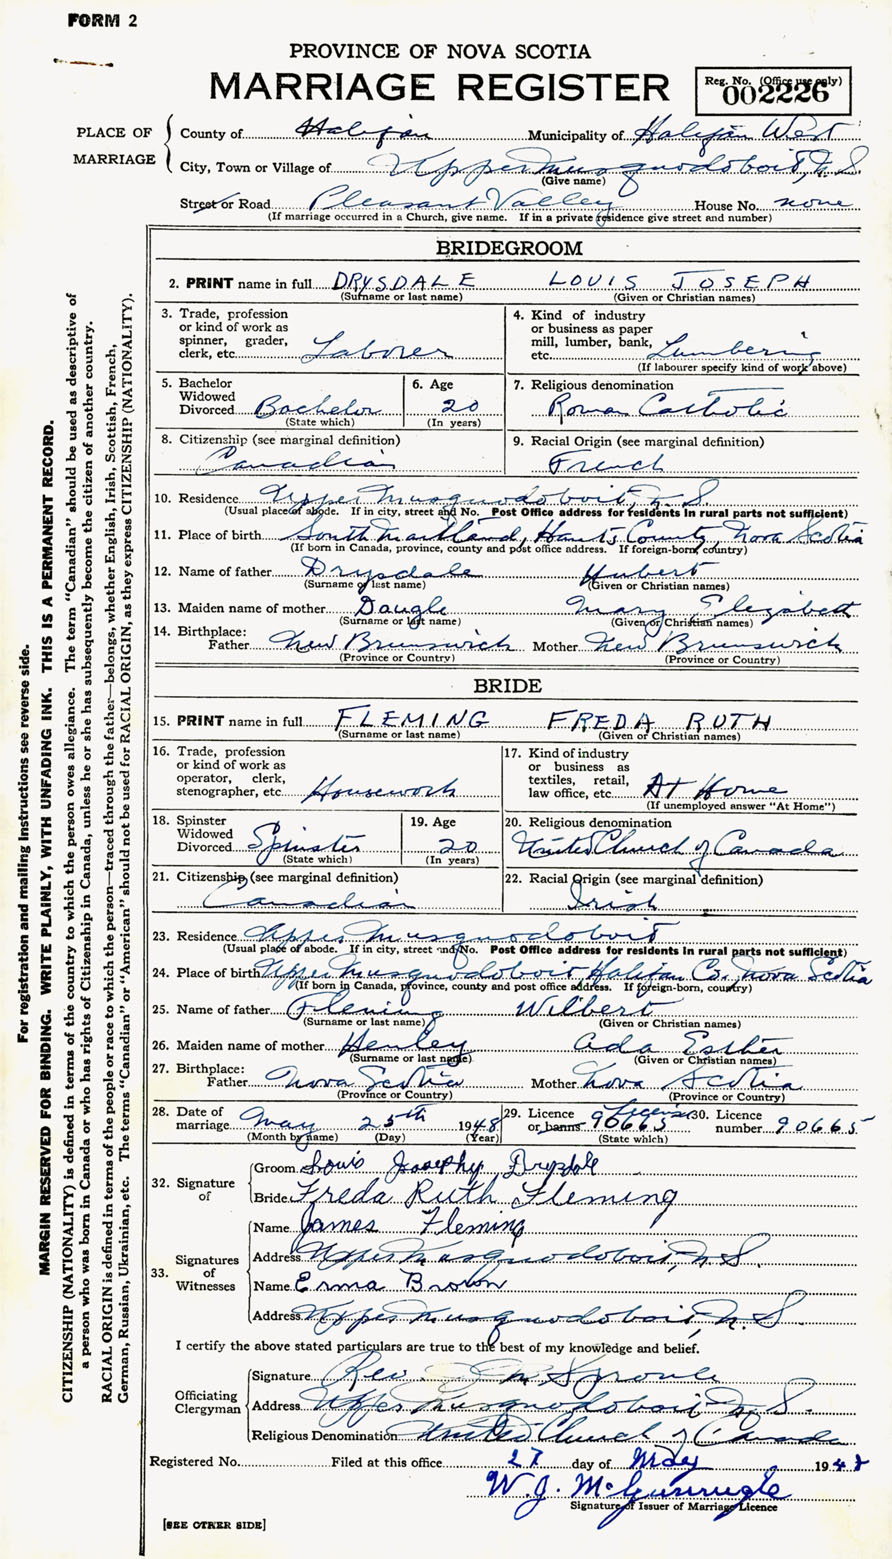 FORM 2
PROVINCE OF NOVA SCOTIA
MARRIAGE REGISTER
Reg. No. (Office use only)
002226
PLACE OF MARRIAGE
County of Halifax Municipality of Halifax West
City, Town or Village of Upper Musquodoboit, N.S.
(Give name)
Street or Road Pleasant Valley House No. none
(If marriage occurred in a Church, give name. If in a private residence give street and number)
BRIDEGROOM
2. PRINT name in full DRYSDALE LOUIS JOSEPH
(Surname or last name) (Given or Christian names)
3. Trade, profession
or kind of work as
spinner, grader,
clerk, etc. Laborer
4. Kind of industry
or business as paper
mill, lumber, bank,
etc. Lumbering
(If labourer specify kind of work above)
5. Bachelor
Widowed
Divorced Bachelor
(State which)
6. Age
20
(In years)
7. Religious denomination
Roman Catholic
8. Citizenship (see marginal definition)
Canadian
9. Racial Origin (see marginal definition)
French
10. Residence Upper Musquodoboit, N.S.
(Usual place of abode. If in city, street and No. Post Office address for residents in rural parts not sufficient)
11. Place of birth South Maitland, Hants County, Nova Scotia
(If born in Canada, province, county and post office address. If foreign-born, country)
12. Name of father Drysdale Hubert
(Surname or last name) (Given or Christian names)
13. Maiden name of mother Daugle Mary Elizabeth
(Surname or last name) (Given or Christian names)
14. Birthplace:
Father New Brunswick Mother New Brunswick
(Province or Country) (Province or Country)
BRIDE
15. PRINT name in full FLEMING FREDA RUTH
(Surname or last name) (Given or Christian names)
16. Trade, profession
or kind of work as
operator, clerk,
stenographer, etc. Housework
17. Kind of industry
or business as
textiles, retail,
law office, etc. At Home
(If unemployed answer "At Home")
18. Spinster
Widowed
Divorced Spinster
(State which)
19. Age
20
(In years)
20. Religious denomination
United Church of Canada
21. Citizenship (see marginal definition)
Canadian
22. Racial Origin (see marginal definition)
Irish
23. Residence Upper Musquodoboit
(Usual place of abode. If in city, street and No. Post Office address for residents in rural parts not sufficient)
24. Place of birth Upper Musquodoboit Halifax Co. Nova Scotia
(If born in Canada, province, county and post office address. If foreign-born, country)
25. Name of father Fleming Wilbert
(Surname or last name) (Given or Christian names)
26. Maiden name of mother Henley Ada Esther
(Surname or last name) (Given or Christian names)
27. Birthplace:
Father Nova Scotia Mother Nova Scotia
(Province or Country) (Province or Country)
28. Date of
marriage May 25th 1948
(Month by name) (Day) (Year)
29. Licence
or banns 90665 License
(State which)
30. Licence
number 90665
32. Signature of
Groom Louis Josephy Drysdale
Bride Freda Ruth Fleming
33. Signatures of Witnesses
Name James Fleming
Address Upper Musquodoboit, N.S.
Name Erma Brown
Address Upper Musquodoboit, N.S.
I certify the above stated particulars are true to the best of my knowledge and belief.
Officiating Clergyman
Signature Rev. M. Sproule
Address Upper Musquodoboit N.S.
Religious Denomination United Church of Canada
Registered No. Filed at this office 27 day of May 1948
W. J. McGunnigle
Signature of Issuer of Marriage Licence
[SEE OTHER SIDE]
For registration and mailing instructions see reverse side.
MARGIN RESERVED FOR BINDING. WRITE PLAINLY, WITH UNFADING INK. THIS IS A PERMANENT RECORD.
CITIZENSHIP (NATIONALITY) is defined in terms of the country to which the person owes allegiance. The term "Canadian" should be used as descriptive of
a person who was born in Canada or who has rights of Citizenship in Canada, unless he or she has subsequently become the citizen of another country.
RACIAL ORIGIN is defined in terms of the people or race to which the person—traced through the father—belongs, whether English, Irish, Scottish, French,
German, Russian, Ukrainian, etc. The terms "Canadian" or "American" should not be used for RACIAL ORIGIN, as they express CITIZENSHIP (NATIONALITY).